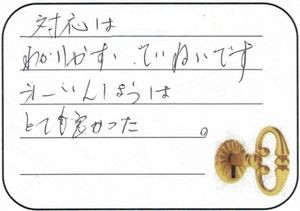 対応は
わかりやすい、ていねいです
第一いんしょうは
とても良かった。